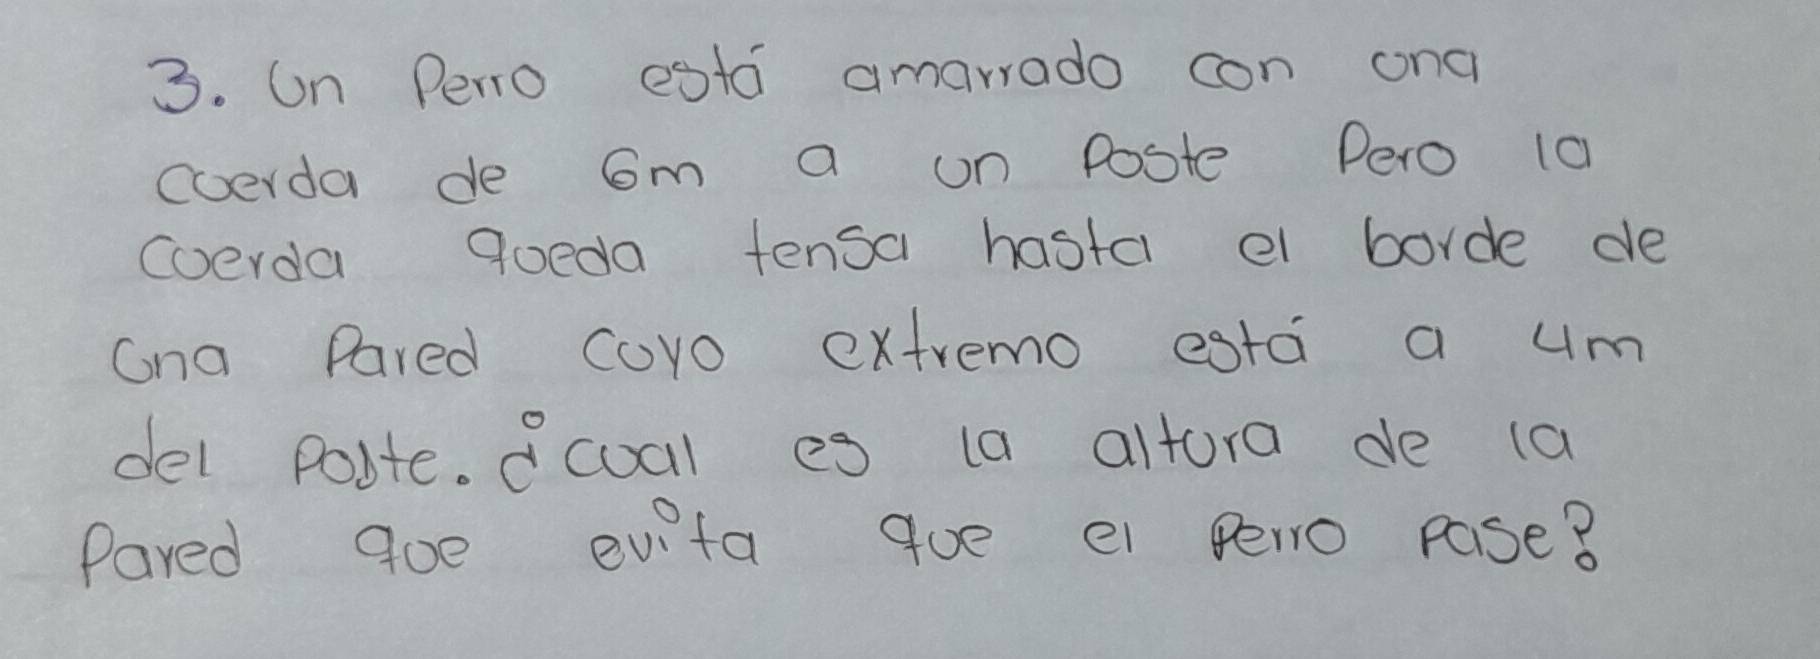 3. Un Perro está amarrado con una
cuerda de 6m a un Poste Pero la
cuerda queda tensa hasta el borde de
una Pared cuyo extremo está a 4m
del Poste. ¿cual es la altura de la
Pared que evita que el Perro Pase?